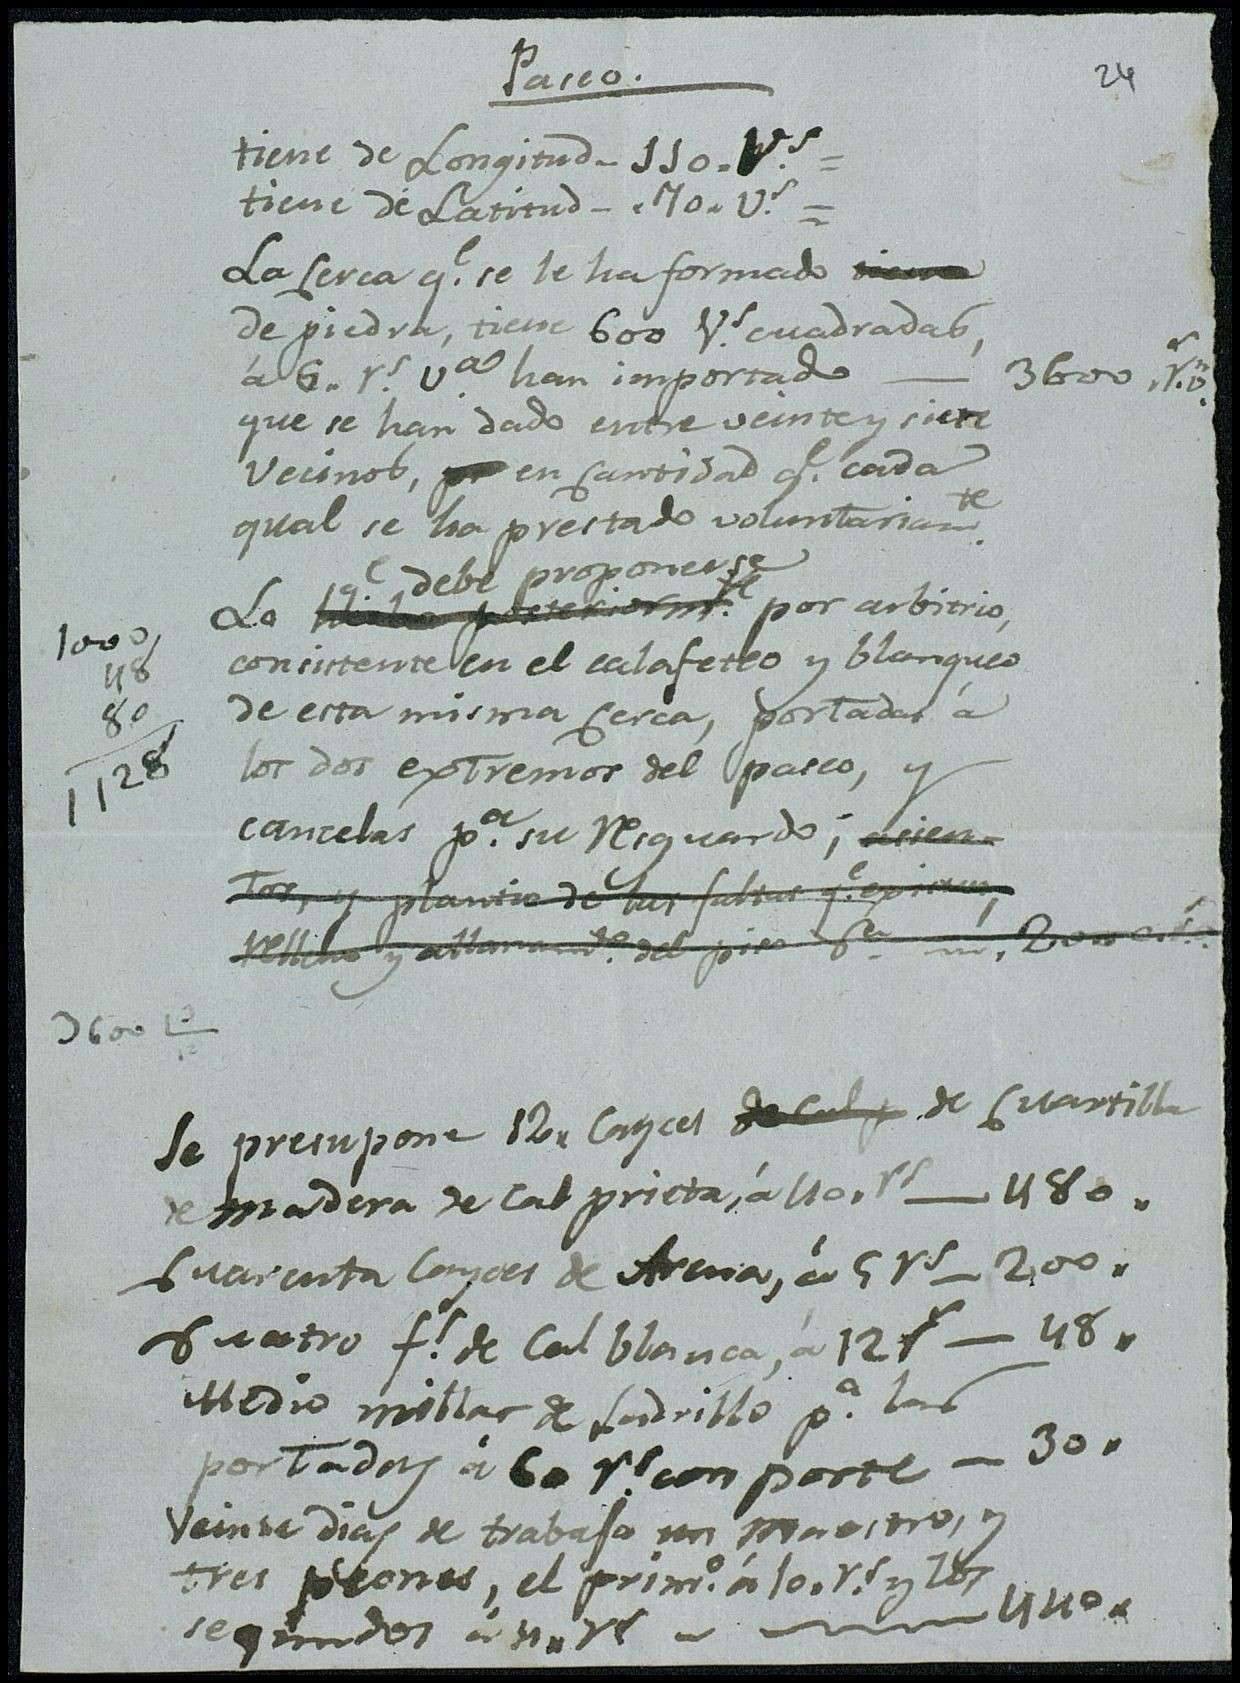 Paseo.
24
tiene de Longitud - 110. V.s =
tiene de Latitud - . 70. V.s =
La Serca q.e se le ha formado tiene
de piedra, tiene 600 V.s cuadradas,
á 6. r.s v.a han importado — 3600 r.s v.n
que se han dado entre veinte y siete
Vecinos, en Cantidad q.e cada
qual se ha prestado voluntariam.te
q.e debe proponerse
Lo posteriorm.te por arbitrio,
consistente en el calafeteo y blanqueo
de esta misma Serca, portadas á
los dos extremos del paseo, y
cancelas p.a su resguardo; asien-
tos, y plantio de las faltas q.e existen,
relleno y allanam.to del piso
1000,
48
80
1128
3600
Se presupone 12. Cayces de Cal p de Cuartilla
de madera de Cal prieta, á 40. r.s — 480.
Cuarenta Cayces de Arena, á 5 r.s - 200.
Cuatro f.s de Cal blanca, á 12 r.s — 48.
Medio millar de Ladrillo p.a las
portadas á 60 r.s con porte - 30.
Veinte dias de trabajo un Maestro, y
tres peones, el prim.o á 10. r.s y los
segundos á 4. r.s - 440.